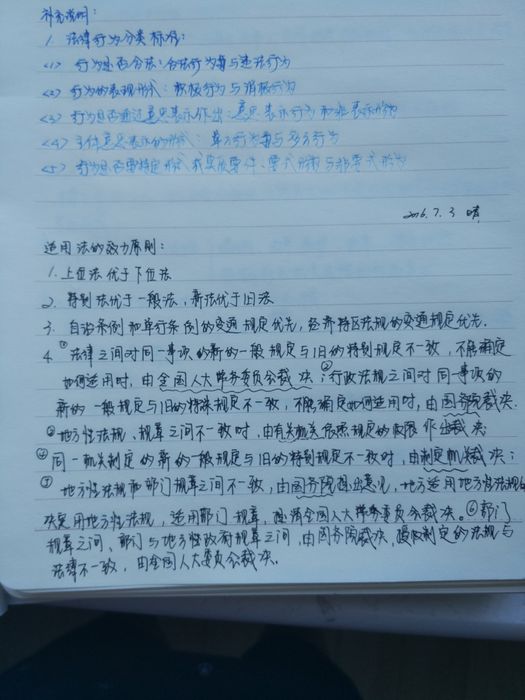 补充说明：
1. 法律行为分类标准：
<1> 行为是否合法：合法行为与违法行为
<2> 行为的表现形式：积极行为与消极行为
<3> 行为是否通过意思表示作出：意思表示行为和非表示行为
<4> 主体意思表示的形式：单方行为与多方行为
<5> 行为是否要特定形式或实质要件：要式行为与非要式行为
2016.7.3 晴
适用法的效力原则：
1. 上位法优于下位法
2. 特别法优于一般法，新法优于旧法
3. 自治条例和单行条例的变通规定优先，经济特区法规的变通规定优先．
4. ①法律之间对同一事项的新的一般规定与旧的特别规定不一致，不能确定
如何适用时，由全国人大常务委员会裁决：②行政法规之间对同一事项的
新的一般规定与旧的特殊规定不一致，不能确定如何适用时，由国务院裁决．
③地方性法规、规章之间不一致时，由有关机关依照规定的权限作出裁决
④同一机关制定的新的一般规定与旧的特别规定不一致时，由制定机关裁决：
⑤ 地方性法规和部门规章之间不一致，由国务院提出意见，地方适用地方性法规的
决定用地方性法规，适用部门规章，提请全国人大常务委员会裁决．⑥部门
规章之间、部门与地方性政府规章之间，由国务院裁决，授权制定的法规与
法律不一致，由全国人大委员会裁决．